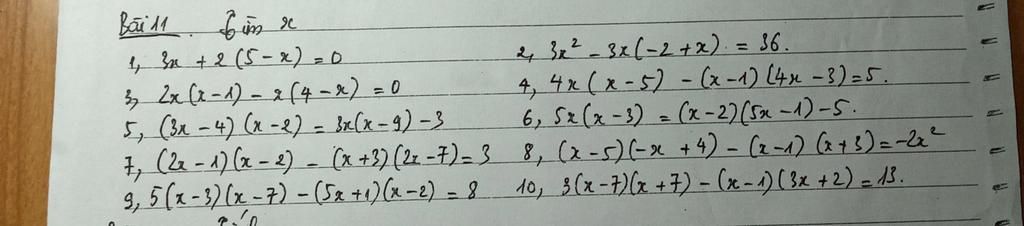 Bài 11. Tìm x
1, 3x + 2(5-x) = 0 2, 3x² - 3x(-2+x) = 36.
3, 2x(x-1) - x(4-x) = 0 4, 4x(x-5) - (x-1)(4x-3) = 5.
5, (3x-4)(x-2) = 3x(x-9) - 3 6, 5x(x-3) = (x-2)(5x-1) - 5.
7, (2x-1)(x-2) - (x+3)(2x-7) = 3 8, (x-5)(-x+4) - (x-1)(x+3) = -2x²
9, 5(x-3)(x-7) - (5x+1)(x-2) = 8 10, 3(x-7)(x+7) - (x-1)(3x+2) = 13.